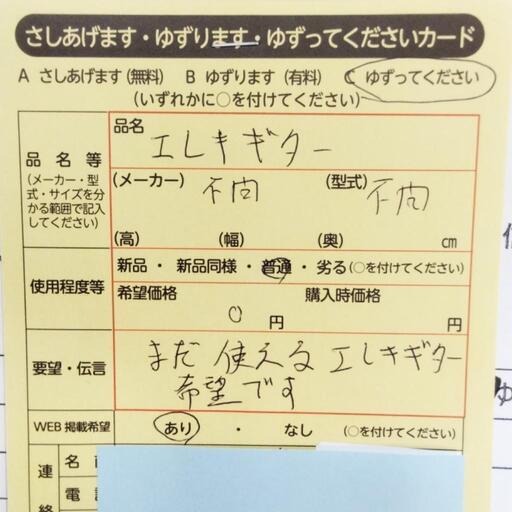 さしあげます・ゆずります・ゆずってくださいカード
A さしあげます(無料) B ゆずります(有料) C ゆずってください
(いずれかに○を付けてください)
品名等
(メーカー・型式・サイズを分かる範囲で記入してください)
品名
エレキギター
(メーカー) 不問 (型式) 不問
(高) (幅) (奥) ㎝
使用程度等
新品・新品同様・普通・劣る(○を付けてください)
希望価格 購入時価格
0円 円
要望・伝言
まだ使えるエレキギター
希望です
WEB掲載希望 あり・なし (○を付けてください)
連絡
名
電